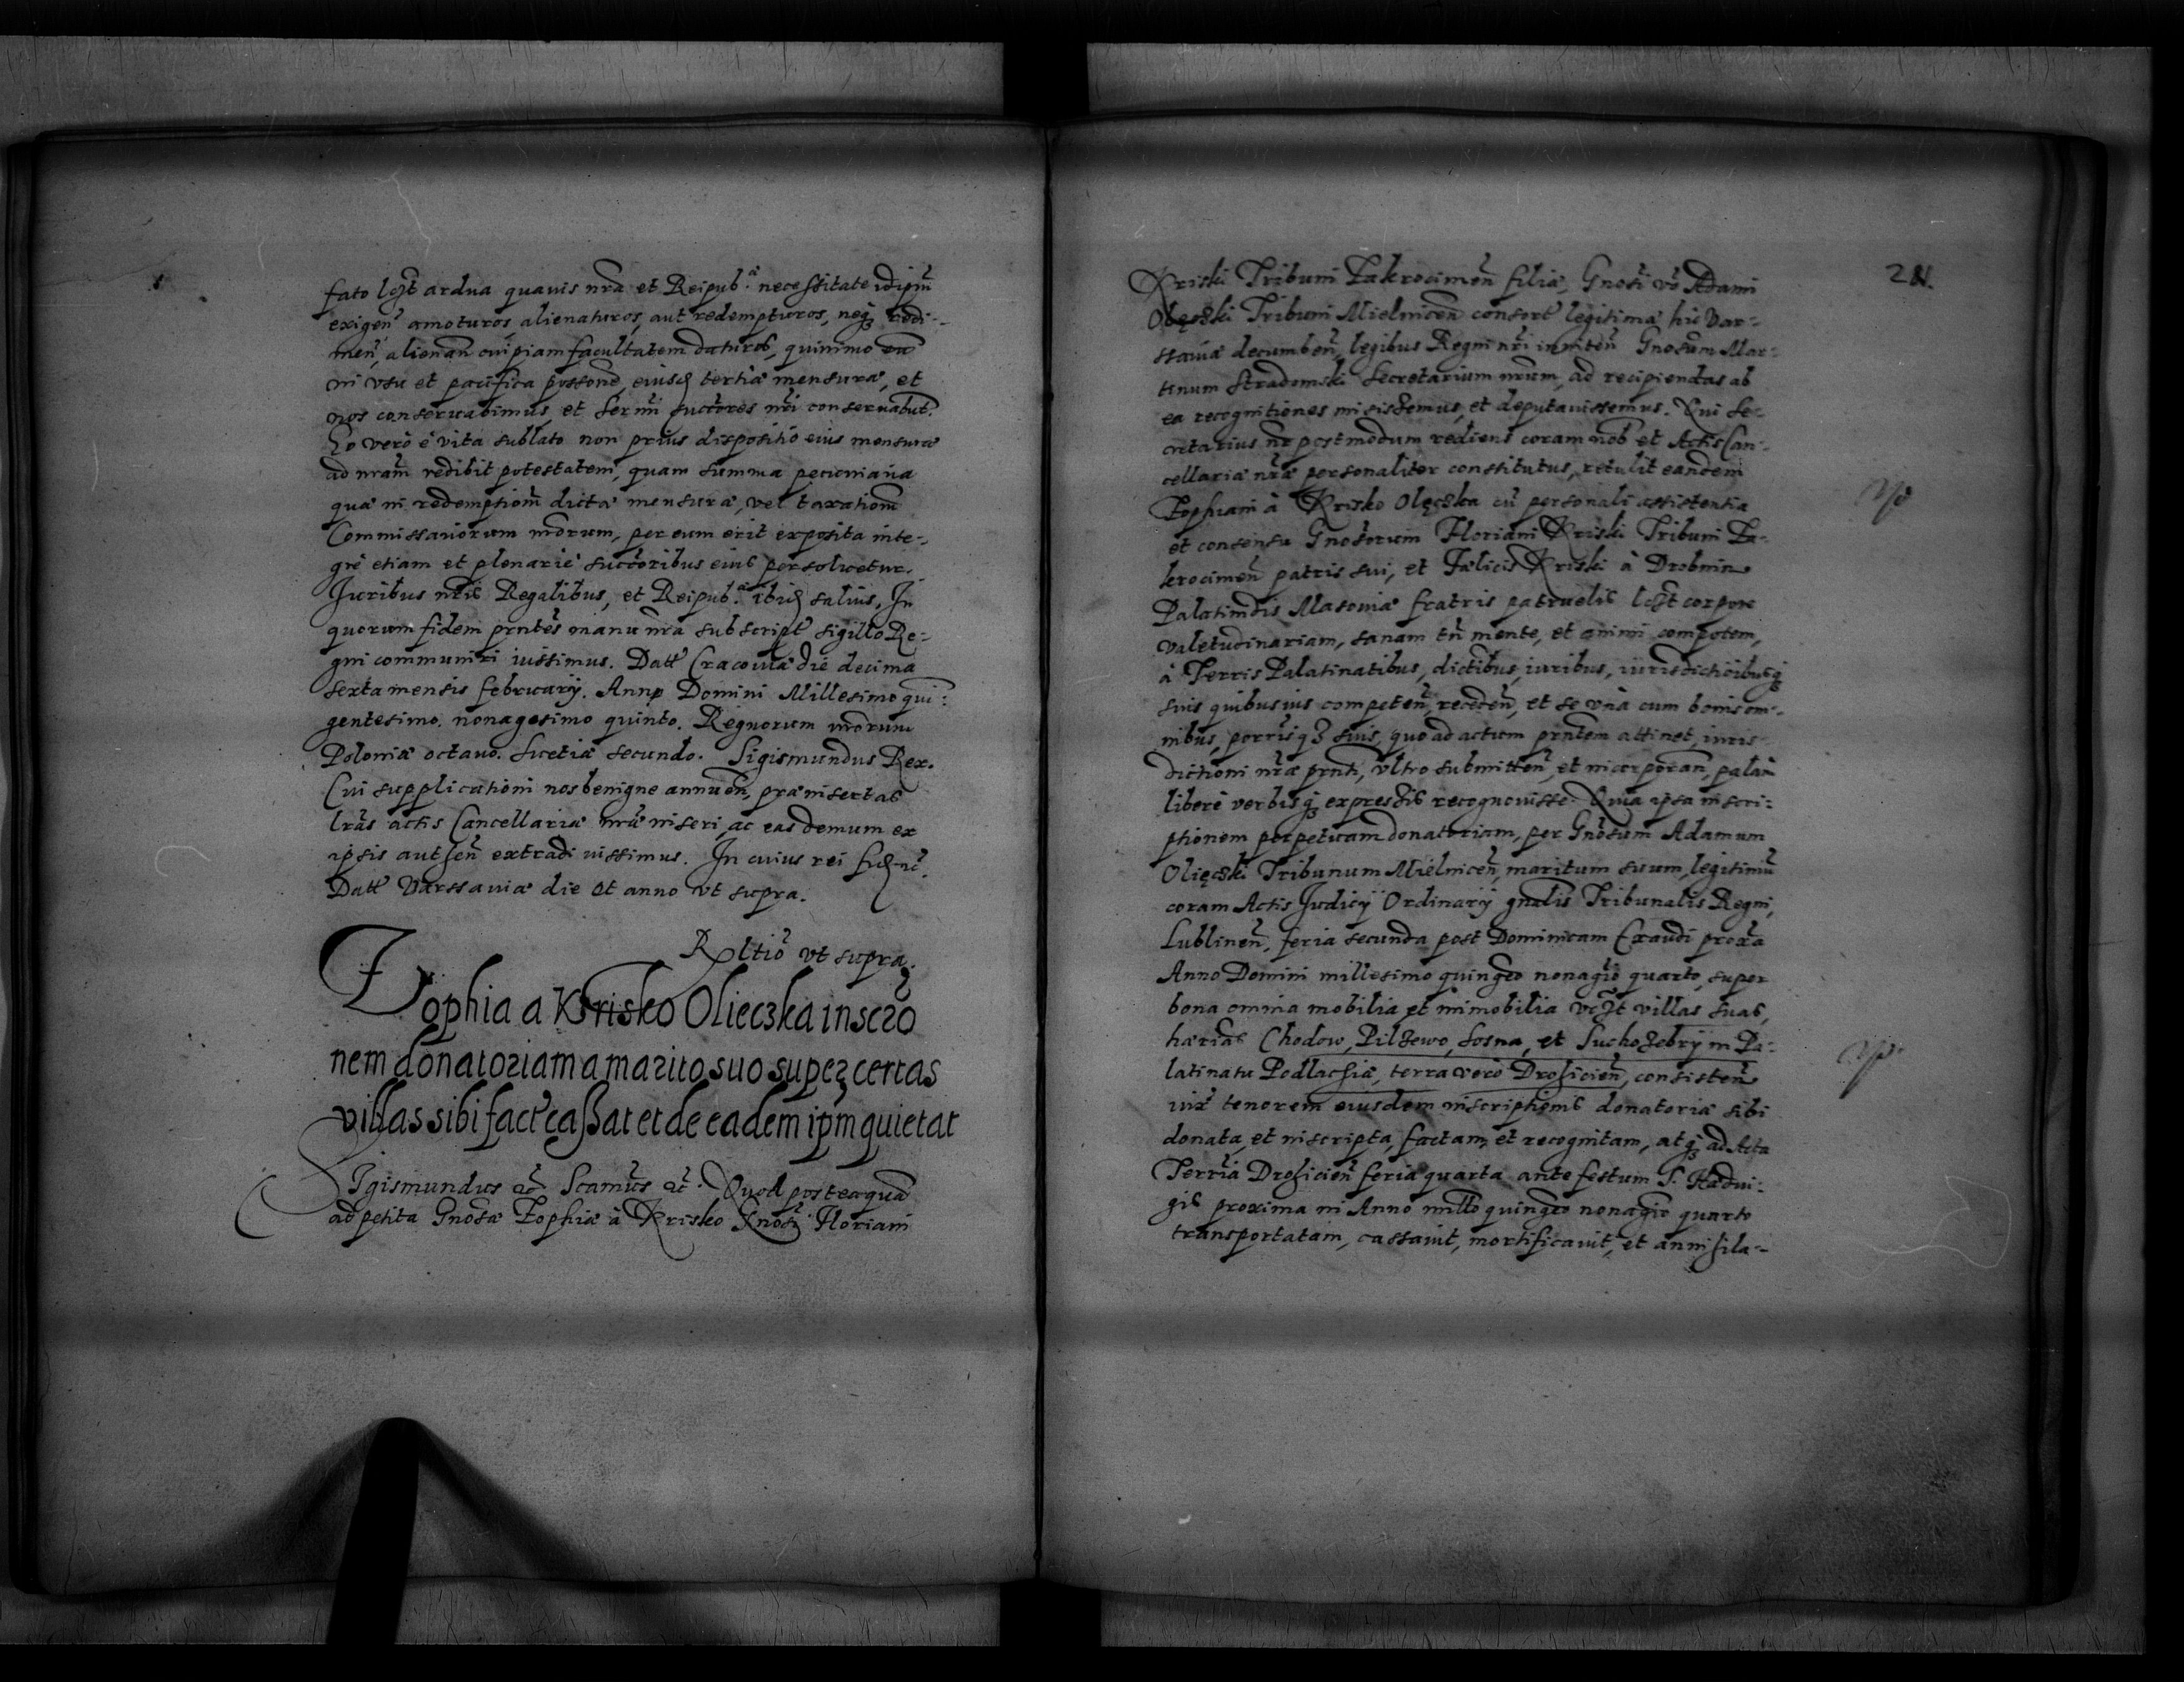 fato licet ardua quavis nra et Reipub. necessitate idipm
exigen amoturos alienaturos, aut redempturos, neq redi-
men, alienan cuipiam facultatem daturos, quinimo eu
in vsu et pacifica possone, eiusd tertiæ mensuræ, et
nos conseruabimus, et Sermi succtores nri conseruabut.
Eo verò è vita sublato non prius dispositio eius mensuræ
ad nram redibit potestatem, quam summa pecuniaria
quæ in redemptionem dictæ mensuræ, vel taxationem
Commissariorum nrorum, per eum erit exposita inte-
gre etiam et plenarie succtoribus eius persolvetur.
Juribus nris Regalibus, et Reipub. ibid salvis, In
quorum fidem pntes manu nra subscript sigillo Re-
gni communiri iussimus. Datt Cracoviæ die decima
sexta mensis februarij. Anno Domini Millesimo qui:
gentesimo nonagesimo quinto. Regnorum nrorum
Poloniæ octavo. Suetiæ secundo. Sigismundus Rex.
Cui supplicationi nos benigne annuen, præinsertas
lras actis Cancellariæ nræ inseri, ac eas demum ex
ipsis authen extradi iussimus. In cuius rei fid nc.
Datt Varssaviæ die et anno vt supra.
Rltio vt supra.
Zophia a Krisko Olieczka inscro
nem donatoriam a marito suo super certas
villas sibi fact cassat et de eadem ipm quietat
Sigismundus etc. Scamus etc. Quod posteaquã
ad petita Gnosæ Zophiæ à Krisko Gnosi Floriani
21.
Kriski Tribuni Zakrocimen filiæ, Gnosi vo Adami
Olęczki Tribuni Mielnicen consort legitimæ hic Var-
staviæ decumben, legibus Regni nri inniten Gnosum Mar-
tinum Stradomski Secretarium nrum, ad recipiendas ab
ea recognitiones misissemus, et deputavissemus. Qui Se-
cretarius nr postmodum rediens coram nob et Actis Can-
cellariæ nræ personaliter constitutus, retulit eandem
Zophiam à Krisko Olęczka cũ personali assistentia
et consensu Gnosorum Floriani Kriski Tribuni Za-
krocimen patris sui, et Fælicis Kriski à Drobnin
Palatinidis Masoviæ fratris patruelis licet corpore
valetudinariam, sanam tn mente, et animi compotem,
à Terris Palatinatibus, dictibus, iuribus, iurisdictioibusq
suis quibusuis competen, receden, et se vnà cum bonis om-
nibus, perrisq suis, quo ad actum pntem attinet, iuris-
dictioni nræ pnti, vltro submitten, et incorporan, palam
libere verbisq expressis recognovisse. Quia ipsa inscri-
ptionem perpetuam donatoriam, per Gnosum Adamum
Olięczki Tribunum Mielnicen, maritum suum, legitimũ
coram Actis Judicij Ordinarij gnalis Tribunalis Regni,
Lublinen, feria secunda post Dominicam Exaudi proxa
Anno Domini millesimo quingeo nonagio quarto, super
bona omnia mobilia et immobilia vczt villas suas,
hærias Chodow, Pilzewo, Sosna, et Suchozebry in Pa-
latinatu Podlachiæ, terra vero Drohicien, consisten
iux tenorem eiusdem inscriptionis donatoriæ sibi
donata, et inscripta, factam, et recognitam, atq ad Acta
Terria Drohicien feria quarta ante festum S. Hadvi-
gis proxima in Anno millo quingeo nonagio quarto
transportatam, cassavit, mortificavit, et annihila-